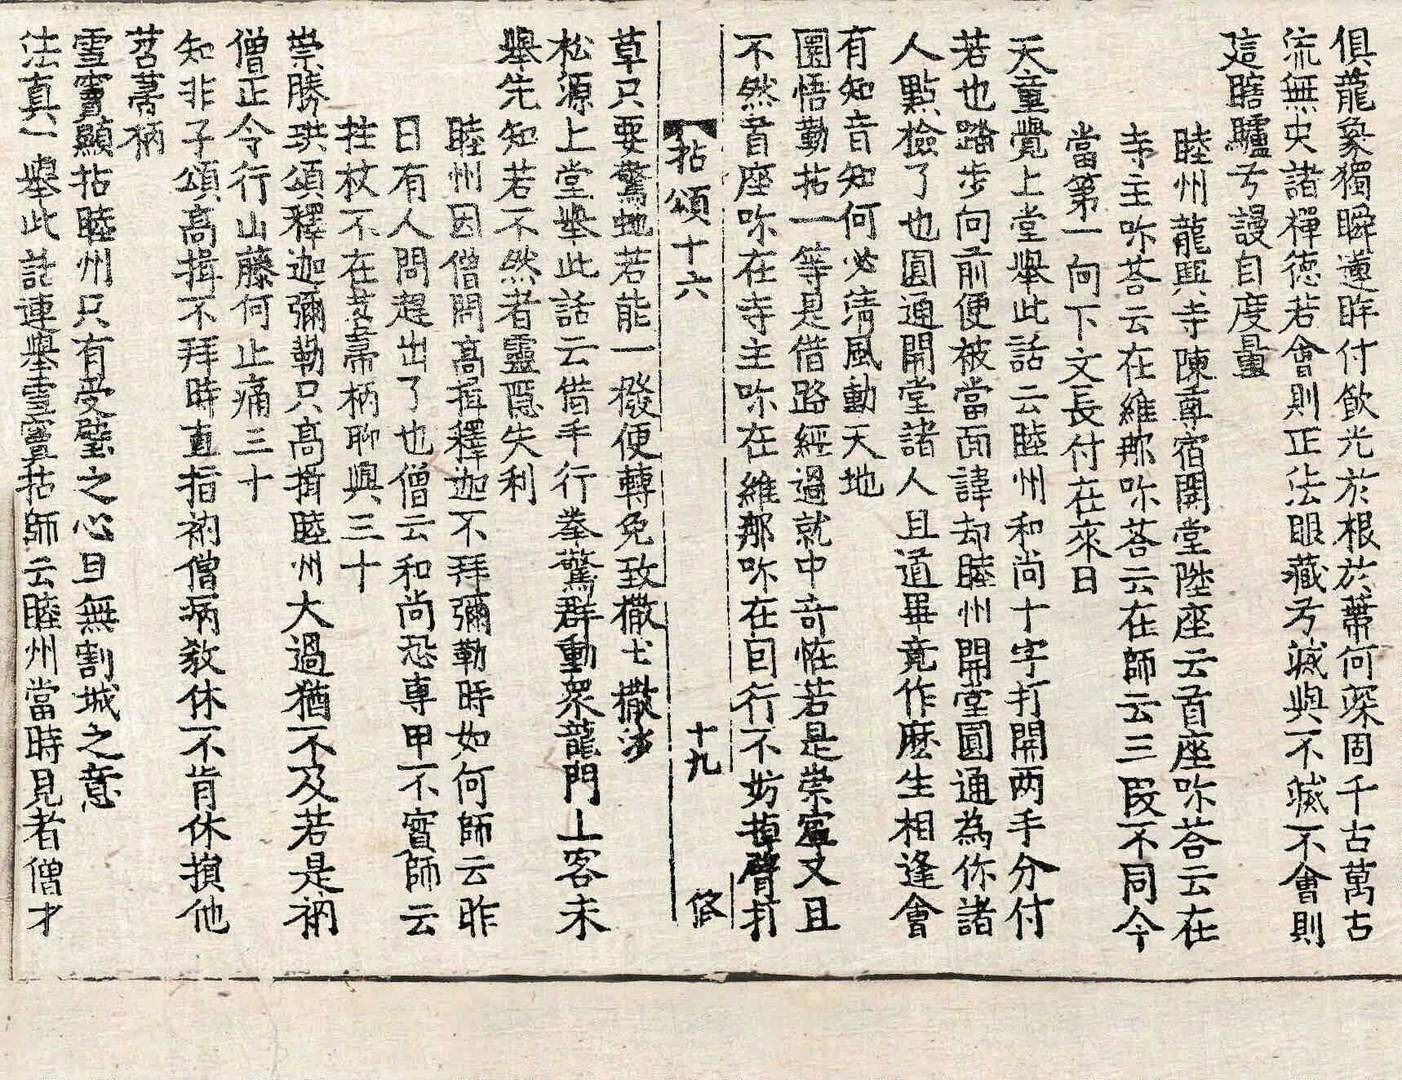 俱龍象獨瞬蓮眸付飲光於根於蔕何深固千古萬古
流無央諸禪德若會則正法眼藏兮滅與不滅不會則
這瞎驢兮謾自度量
睦州龍興寺陳尊宿開堂陞座云首座咻荅云在
寺主咻荅云在維那咻荅云在師云三段不同今
當第一向下文長付在來日
天童覺上堂舉此話云睦州和尚十字打開两手分付
若也踏步向前便被當面諱却睦州開堂圓通為你諸
人點檢了也圓通開堂諸人且道畢竟作麽生相逢會
有知音知何必清風動天地
圜悟勤拈一等是借路經過就中奇恠若是崇寧又且
不然首座咻在寺主咻在維那咻在囙行不妨掉臂打
拈頌十六 十九 俢
草只要驚虵若能一撥便轉免致撒𡈽撒沙
松源上堂舉此話云借手行拳驚群動衆龍門上客未
舉先知若不然者靈隱失利
睦州因僧問髙揖釋迦不拜彌勒時如何師云昨
日有人問趕出了也僧云和尚恐専甲不實師云
拄杖不在苕菷柄聊與三十
崇勝珙頌釋迦彌勒只髙揖睦州大過猶不及若是衲
僧正令行山藤何止痛三十
知非子頌髙揖不拜時直指衲僧病教休不肯休損他
苕菷柄
雪竇顯拈睦州只有受璧之心且無割城之意
法真一舉此話連舉雪竇拈師云睦州當時見者僧才